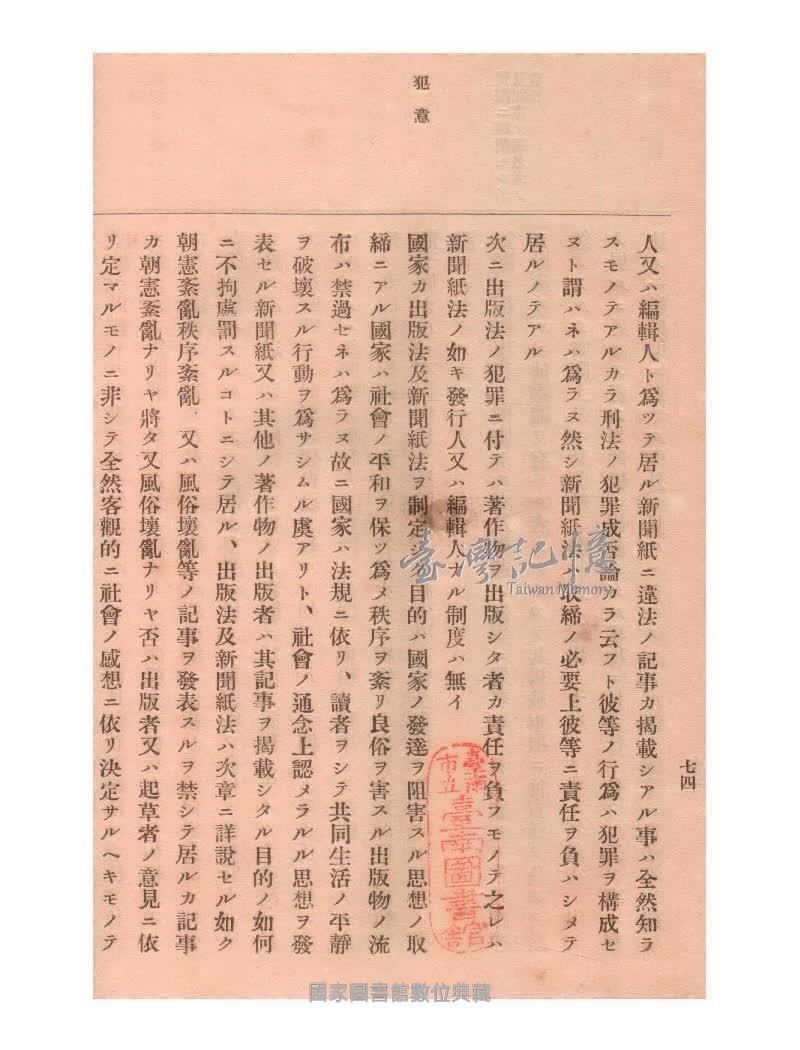 七四
犯意
人又ハ編輯人ト爲ツテ居ル新聞紙ニ違法ノ記事カ揭載シアル事ハ全然知ラ
スモノテアルカラ刑法ノ犯罪成否論カラ云フト彼等ノ行爲ハ犯罪ヲ構成セ
ヌト謂ハネハ爲ラヌ然シ新聞紙法ハ取締ノ必要上彼等ニ責任ヲ負ハシメテ
居ルノテアル
次ニ出版法ノ犯罪ニ付テハ著作物ヲ出版シタ者カ責任ヲ負フモノテ之レハ
新聞紙法ノ如キ發行人又ハ編輯人ナル制度ハ無イ
國家カ出版法及新聞紙法ヲ制定シ目的ハ國家ノ發達ヲ阻害スル思想ノ取
締ニアル國家ハ社會ノ平和ヲ保ツ爲メ秩序ヲ紊リ良俗ヲ害スル出版物ノ流
布ハ禁遏セネハ爲ラヌ故ニ國家ハ法規ニ依リ、讀者ヲシテ共同生活ノ平靜
ヲ破壞スル行動ヲ爲サシムル虞アリト、社會ノ通念上認メラルル思想ヲ發
表セル新聞紙又ハ其他ノ著作物ノ出版者ハ其記事ヲ揭載シタル目的ノ如何
ニ不拘處罰スルコトニシテ居ル、出版法及新聞紙法ハ次章ニ詳說セル如ク
朝憲紊亂秩序紊亂、又ハ風俗壞亂等ノ記事ヲ發表スルヲ禁シテ居ルカ記事
カ朝憲紊亂ナリヤ將タ又風俗壞亂ナリヤ否ハ出版者又ハ起草者ノ意見ニ依
リ定マルモノニ非シテ全然客觀的ニ社會ノ感想ニ依リ決定サルヘキモノテ
臺灣記憶
Taiwan Memory
市立臺南圖書館
國家圖書館數位典藏